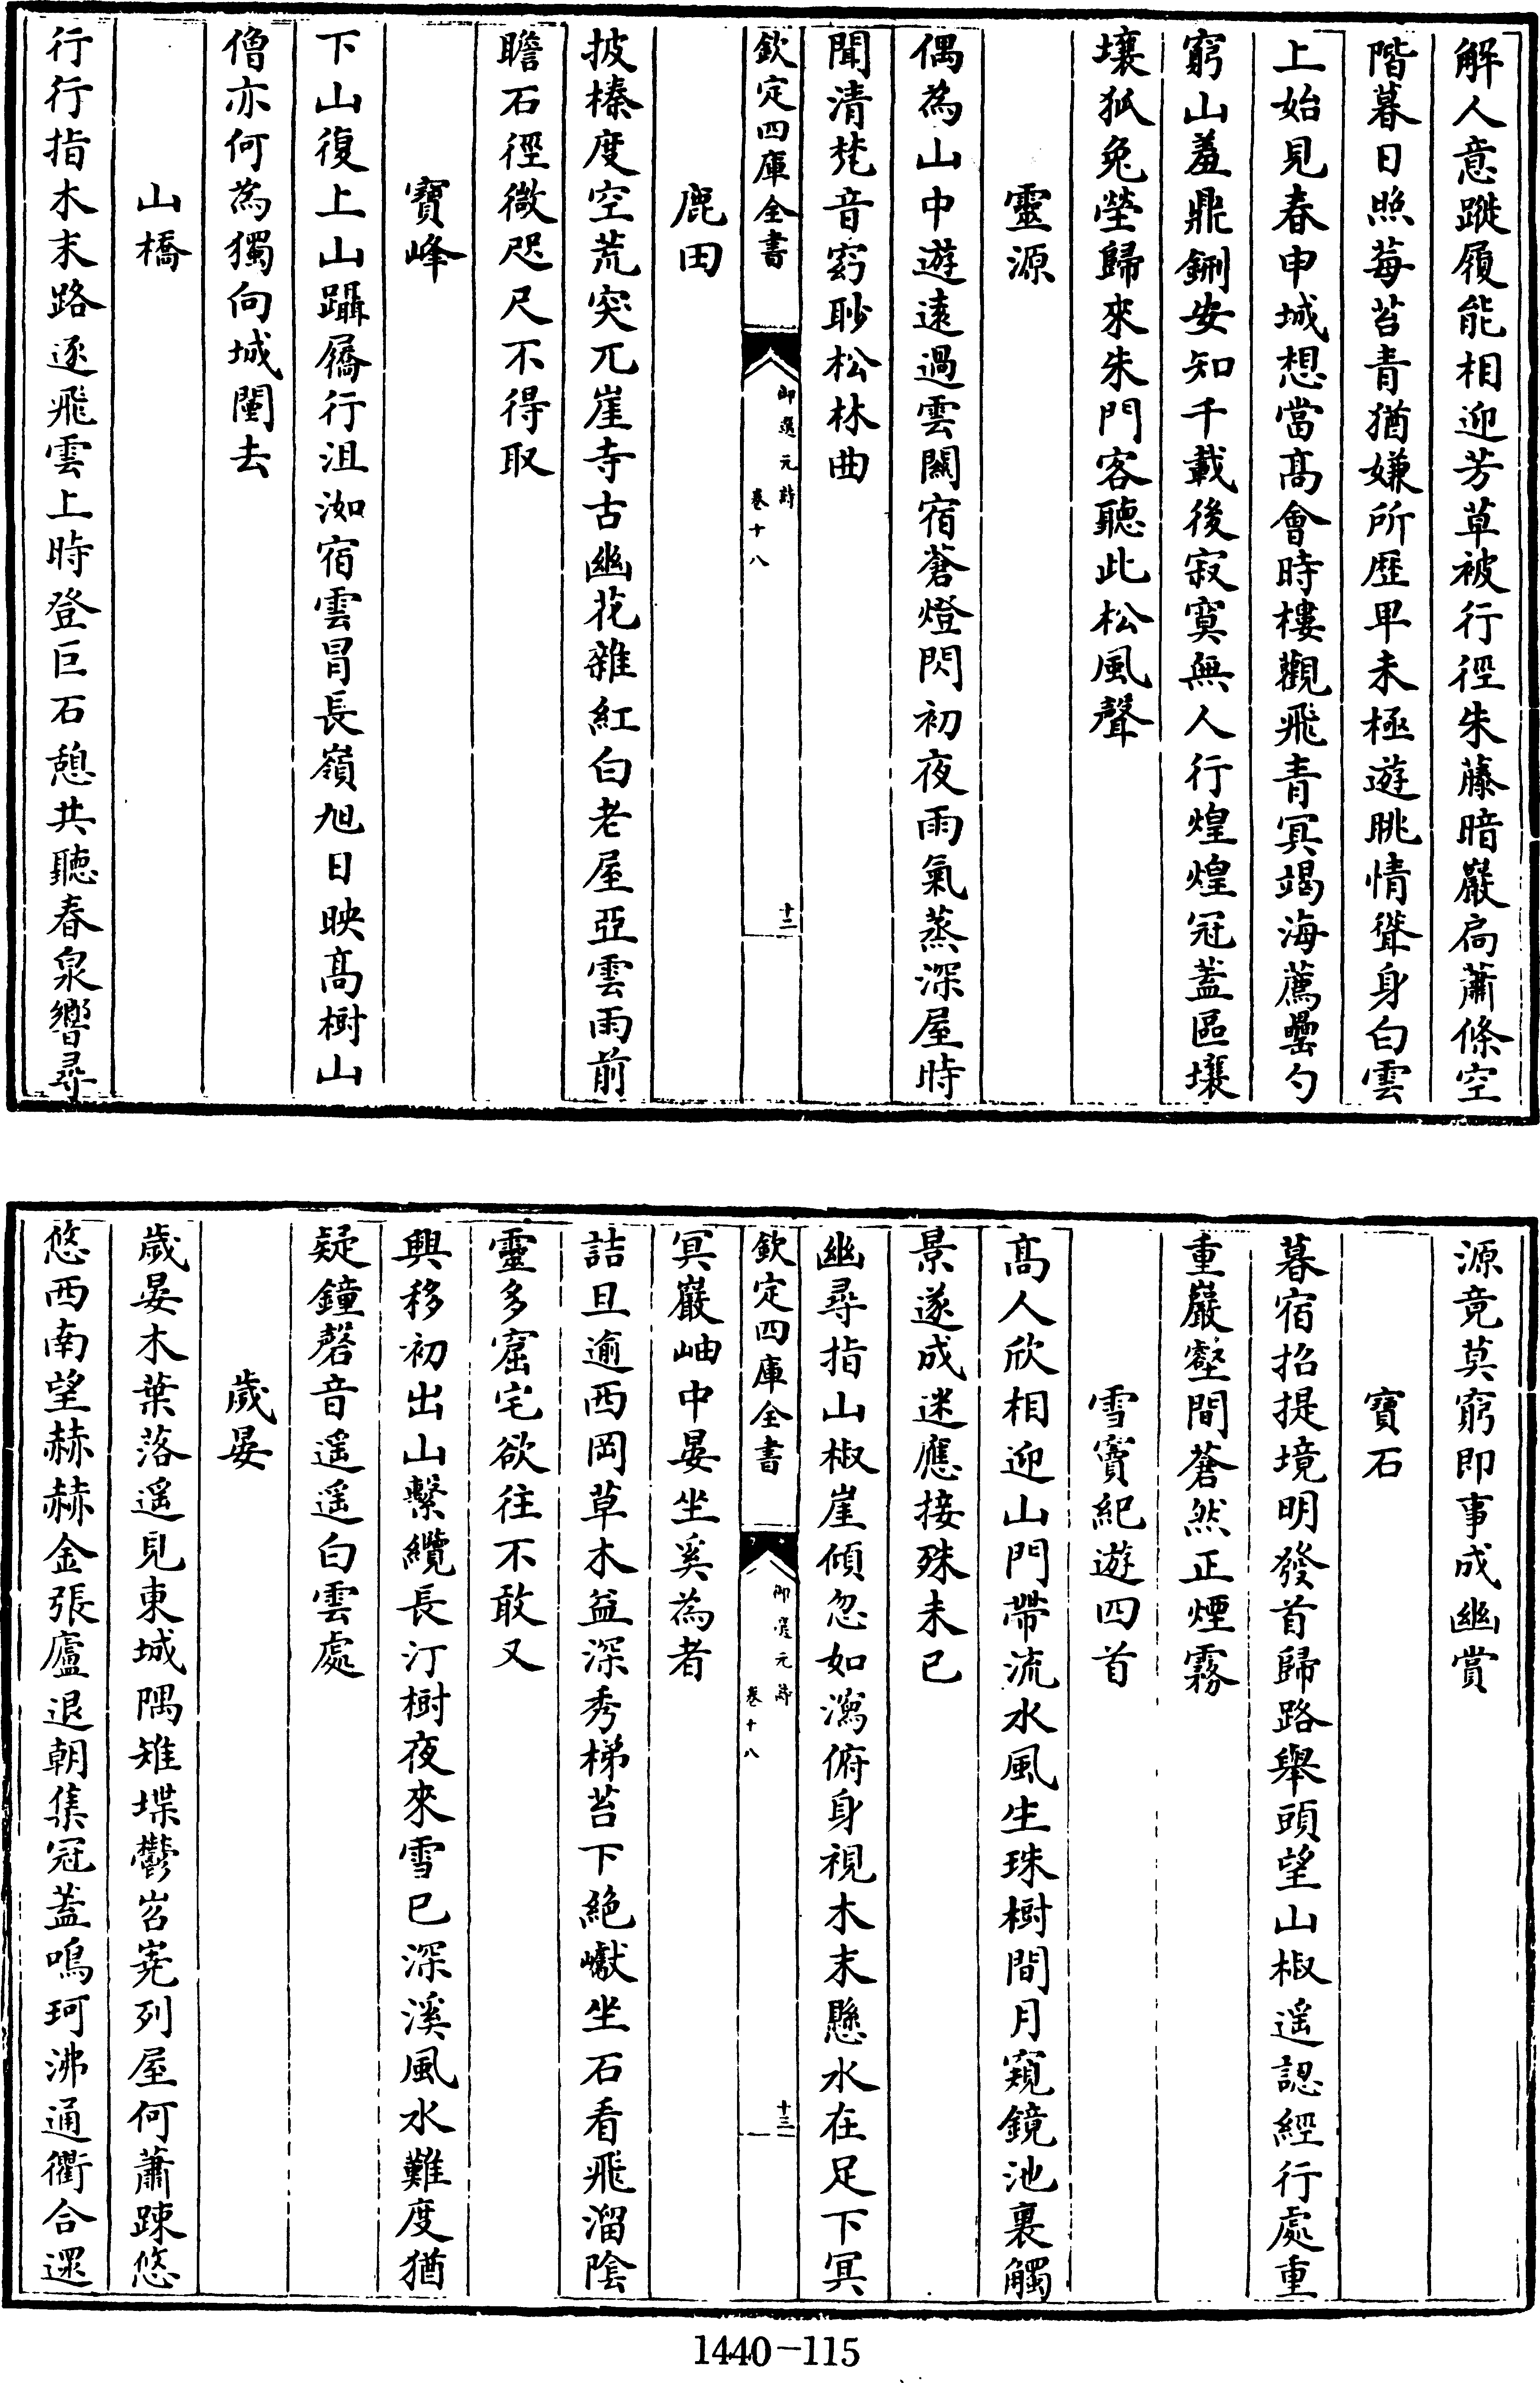 解人意蹤履能相迎芳草被行徑朱藤暗巖扃蕭條空
階暮日照莓苔青猶嫌所歷早未極遊眺情聳身白雲
上始見春申城想當髙會時樓觀飛青冥竭海薦罍勺
窮山羞鼎鉶安知千載後寂寞無人行煌煌冠蓋區壤
壤狐兔塋歸來朱門客聽此松風聲
靈源
偶為山中遊遠過雲關宿蒼燈閃初夜雨氣蒸深屋時
聞清梵音窈眇松林曲
欽定四庫全書
御選元詩
卷十八
十二
鹿田
披榛度空荒突兀崖寺古幽花雜紅白老屋亞雲雨前
瞻石徑微咫尺不得取
寶峰
下山復上山躡屩行沮洳宿雲冒長嶺旭日映髙樹山
僧亦何為獨向城闉去
山橋
行行指木末路逐飛雲上時登巨石憩共聽春泉響尋
源竟莫窮即事成幽賞
寶石
暮宿招提境明發首歸路舉頭望山椒遥認經行處重
重巖壑間蒼然正煙霧
雪竇紀遊四首
髙人欣相迎山門帶流水風生珠樹間月窺鏡池裏觸
景遂成迷應接殊未已
幽尋指山椒崖傾忽如瀉俯身視木末懸水在足下冥
欽定四庫全書
御選元詩
卷十八
十三
冥巖岫中晏坐奚為者
詰旦逾西岡草木益深秀梯苔下絶巘坐石看飛溜陰
靈多窟宅欲往不敢又
興移初出山繫纜長汀樹夜來雪已深溪風水難度猶
疑鐘磬音遥遥白雲處
歲晏
歲晏木葉落遥見東城隅雉堞鬱岧嶤列屋何蕭疎悠
悠西南望赫赫金張廬退朝集冠蓋鳴珂沸通衢合遝
1440-115